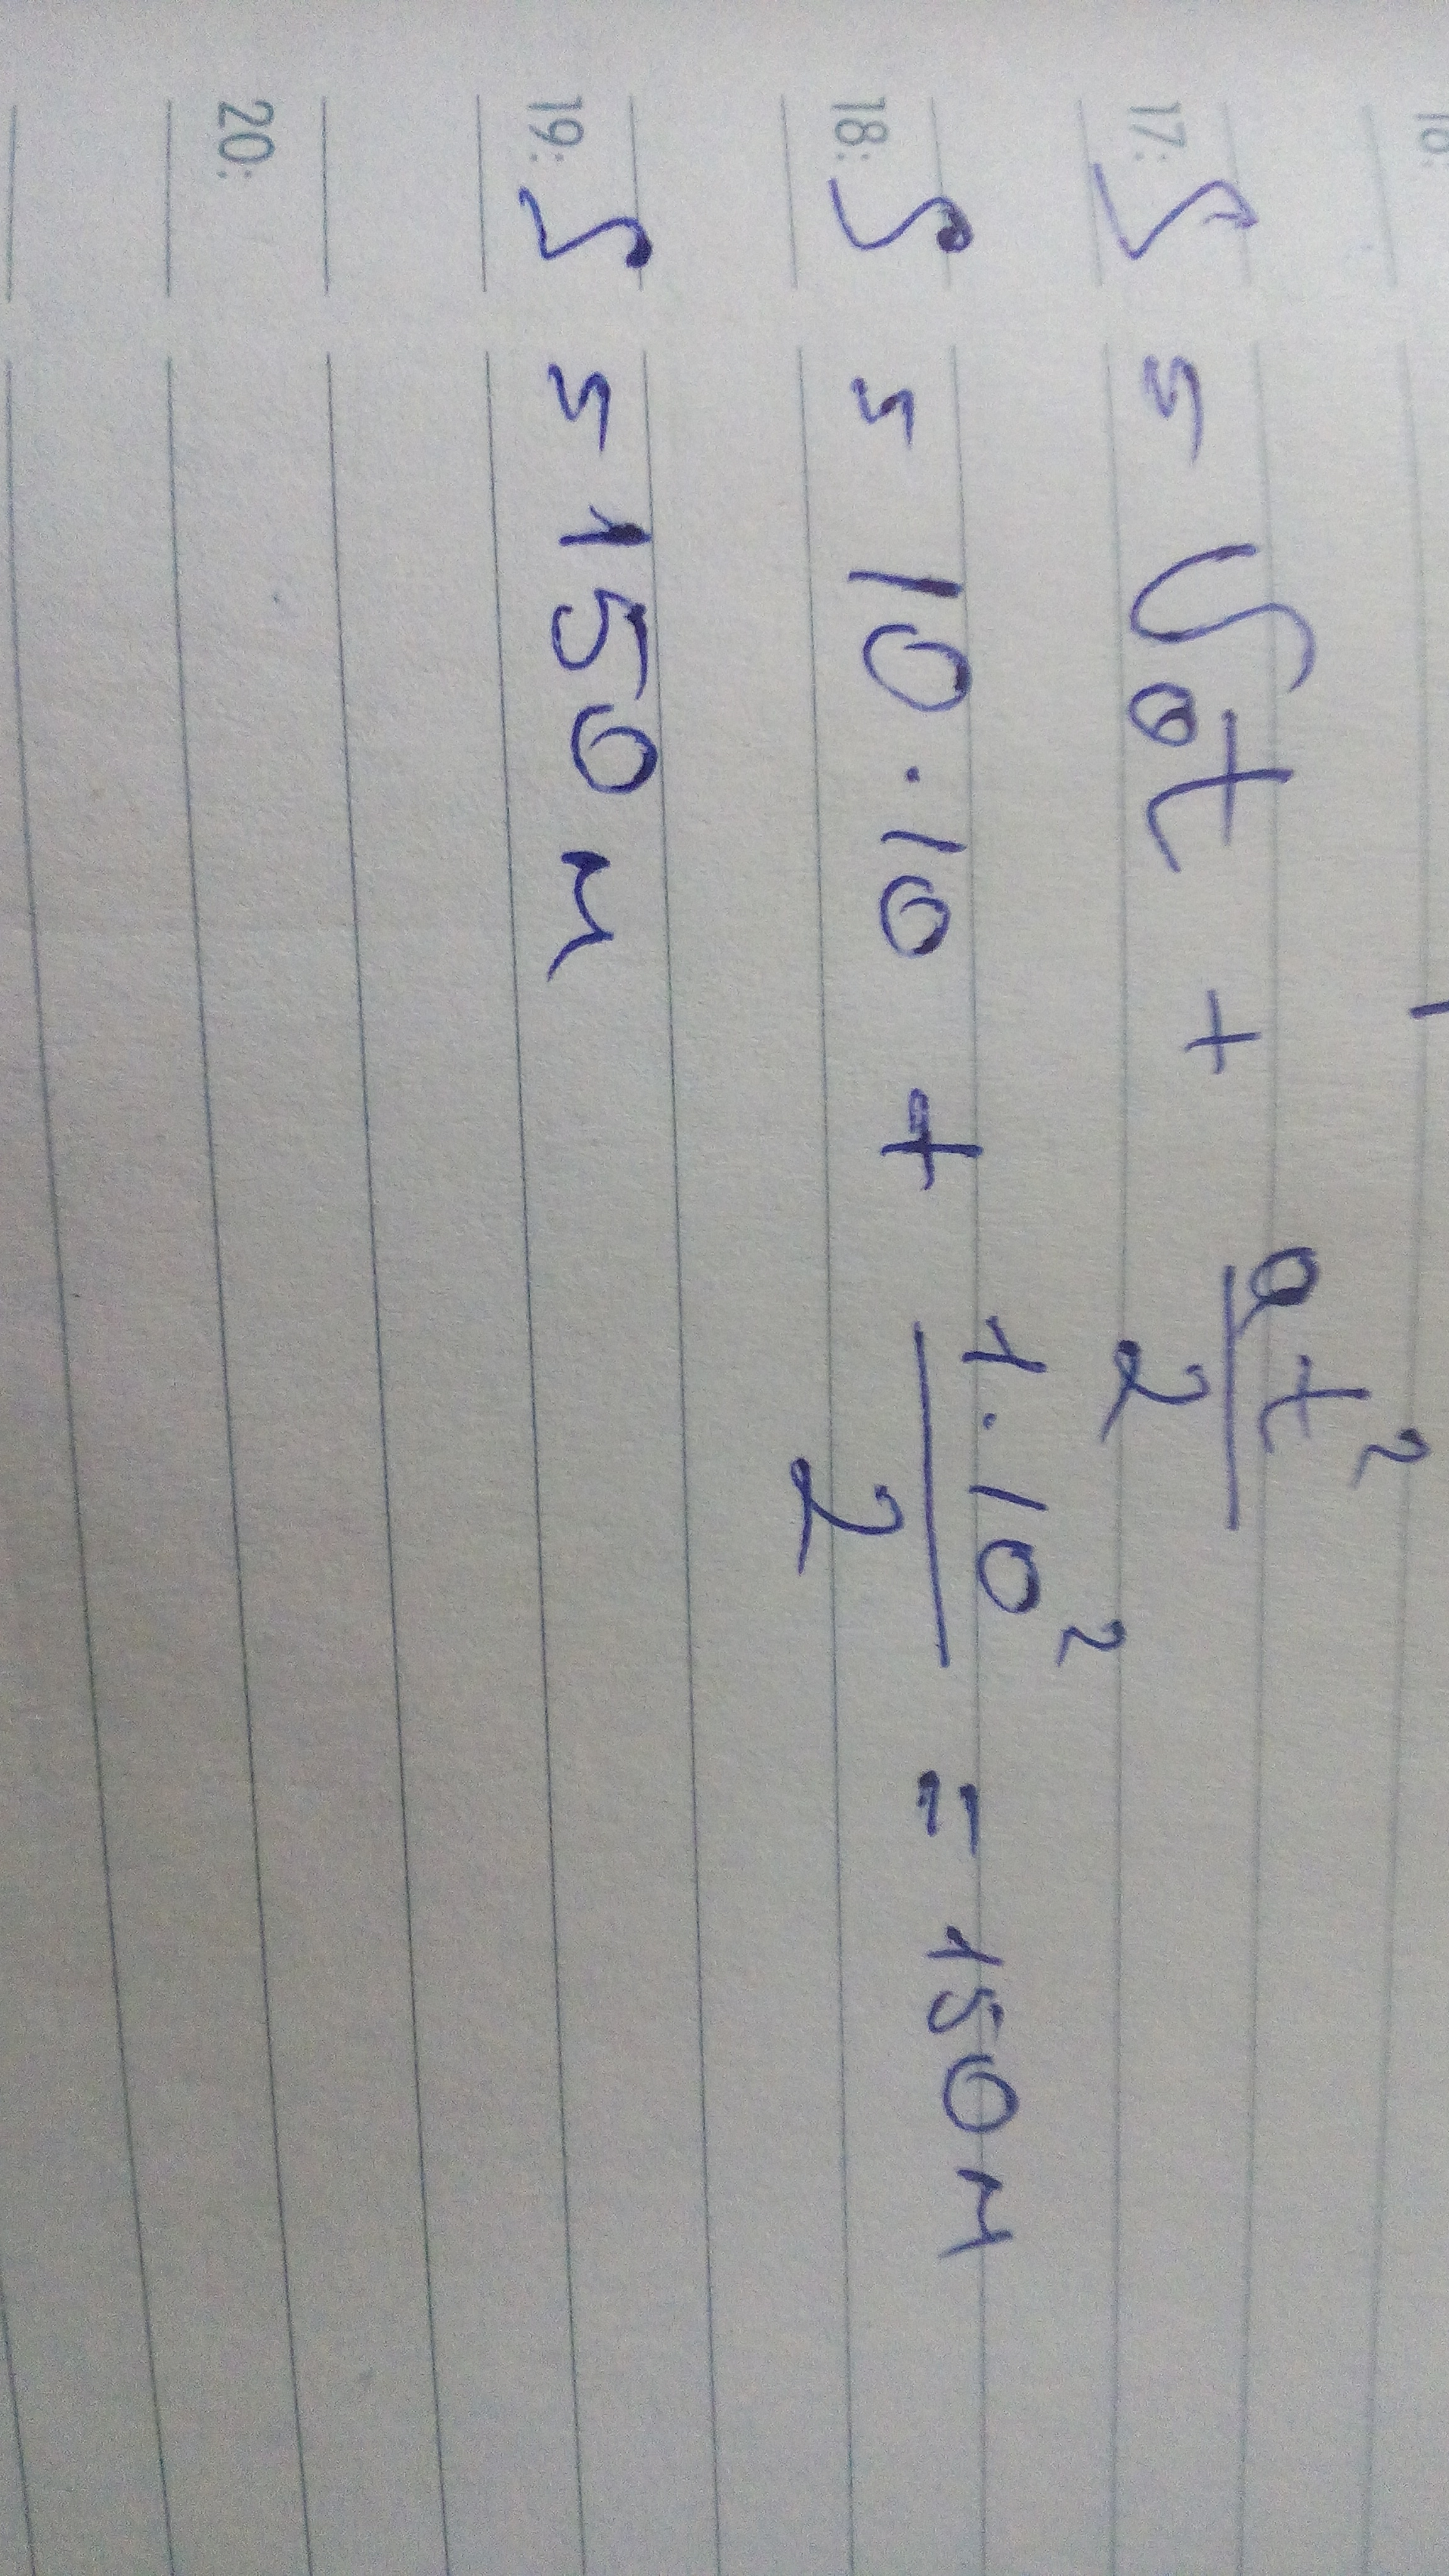 17: S = V₀t + at²/2
18: S = 10 · 10 + 1 · 10²/2 = 150 м
19: S = 150 м
20: